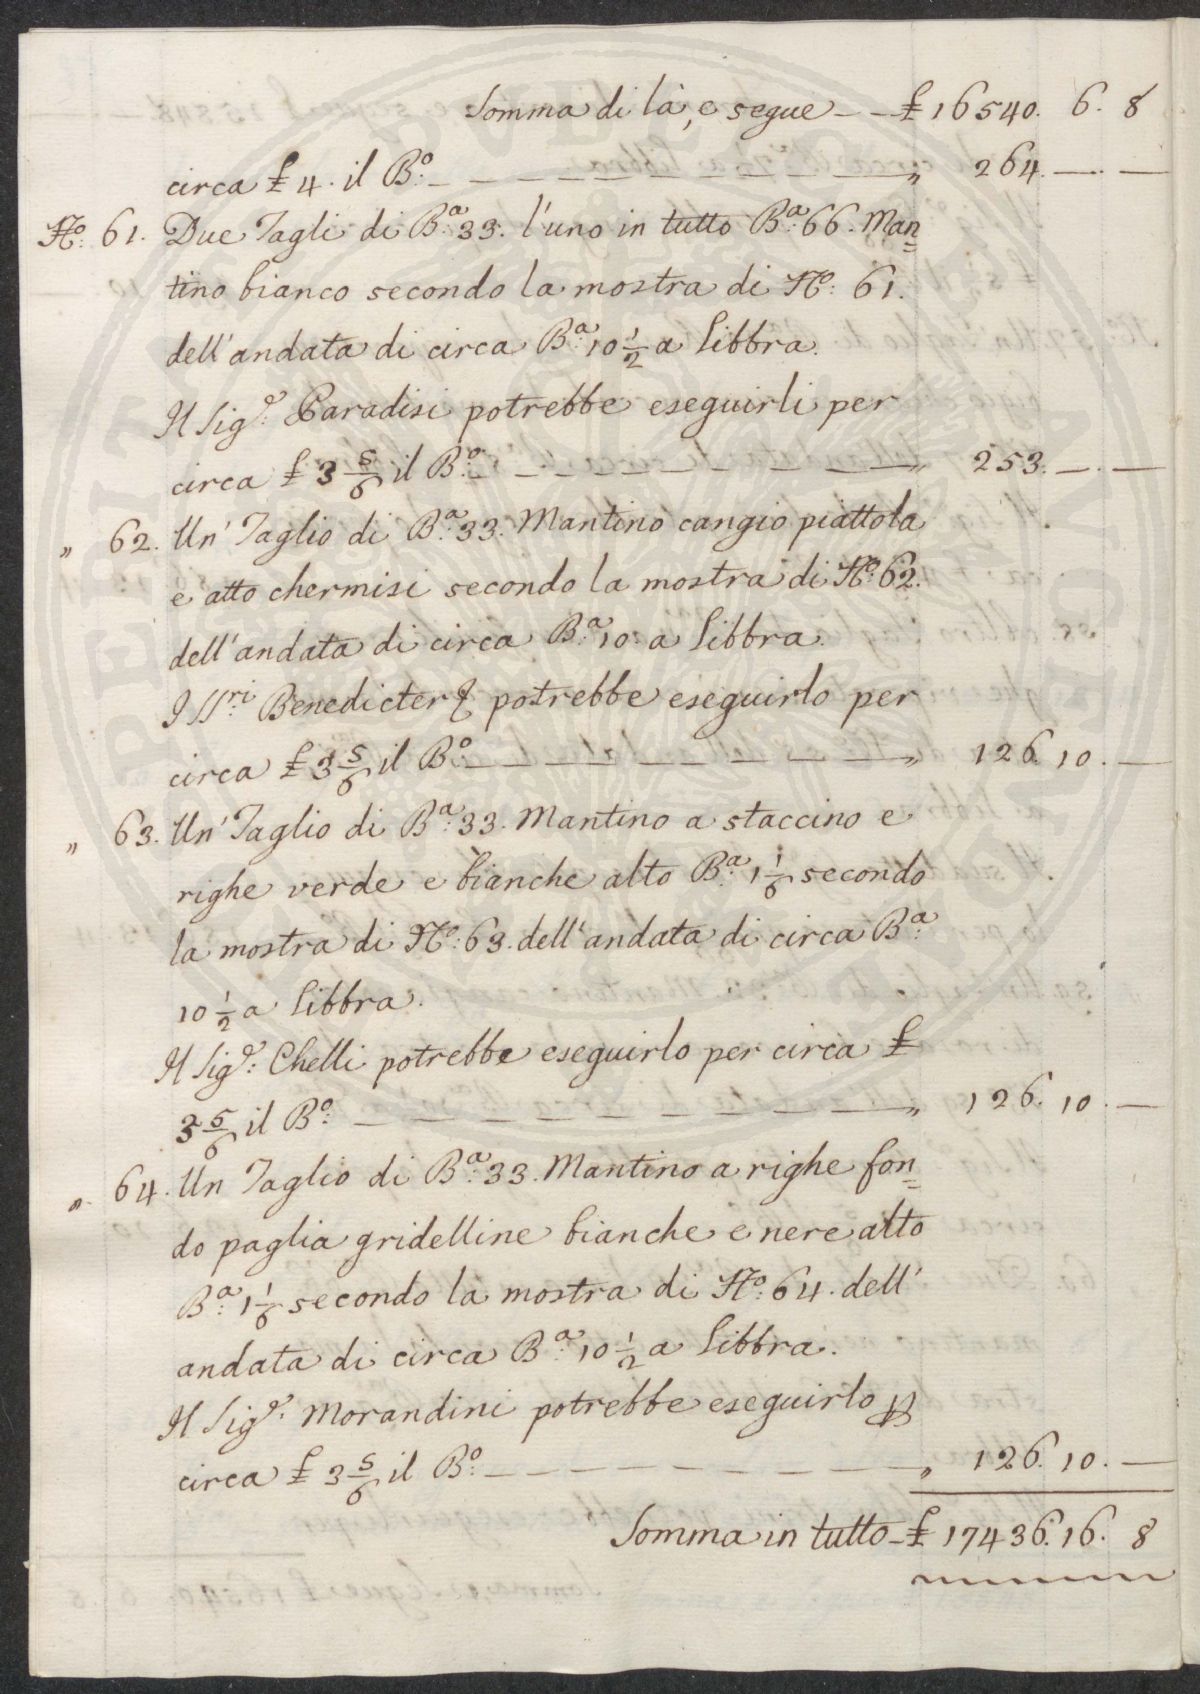 Somma di là, e segue - - £ 16540. 6. 8
circa £ 4. il B.º - - - - - - - - - - „ 264. — —
Nº: 61. Due Tagli di B.ª 33. l'uno in tutto B.ª 66. Man=
tino bianco secondo la mostra di Nº: 61.
dell'andata di circa B.ª 10 1/2 a libbra.
Il Sig.ʳ: Paradisi potrebbe eseguirli per
circa £ 3 5/6 il B.º - - - - - - - - - „ 253. — —
„ 62. Un' Taglio di B.ª 33. Mantino cangio piattola
e atto chermisi secondo la mostra di Nº: 62.
dell'andata di circa B.ª 10. a libbra.
I SS.ʳⁱ Benedicter & potrebbe eseguirlo per
circa £ 3 5/6 il B.º - - - - - - - - - „ 126. 10. —
„ 63. Un' Taglio di B.ª 33. Mantino a staccino e
righe verde e bianche alto B.ª 1 1/6 secondo
la mostra di Nº: 63. dell'andata di circa B.ª
10 1/2 a libbra.
Il Sig.ʳ: Chelli potrebbe eseguirlo per circa £
3 5/6 il B.º - - - - - - - - - - „ 126. 10. —
„ 64. Un Taglio di B.ª 33. Mantino a righe fon=
do paglia gridelline bianche e nere alto
B.ª 1 1/6 secondo la mostra di Nº: 64. dell'
andata di circa B.ª 10 1/2 a libbra.
Il Sig.ʳ: Morandini potrebbe eseguirlo ꝑ
circa £ 3 5/6 il B.º - - - - - - - - „ 126. 10. —
Somma in tutto - £ 17436. 16. 8